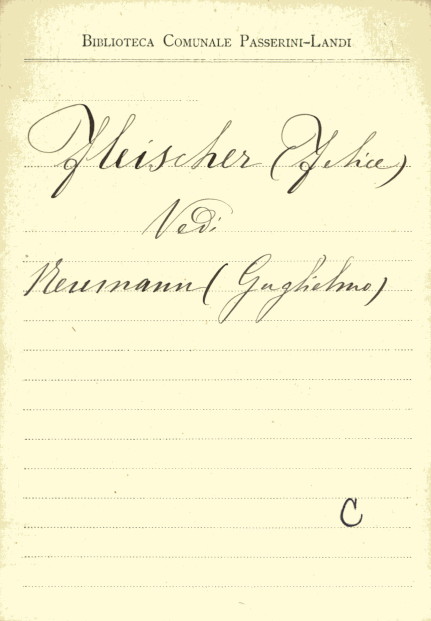 BIBLIOTECA COMUNALE PASSERINI-LANDI
Fleischer (Felice)
Vedi
Neumann (Guglielmo)
C